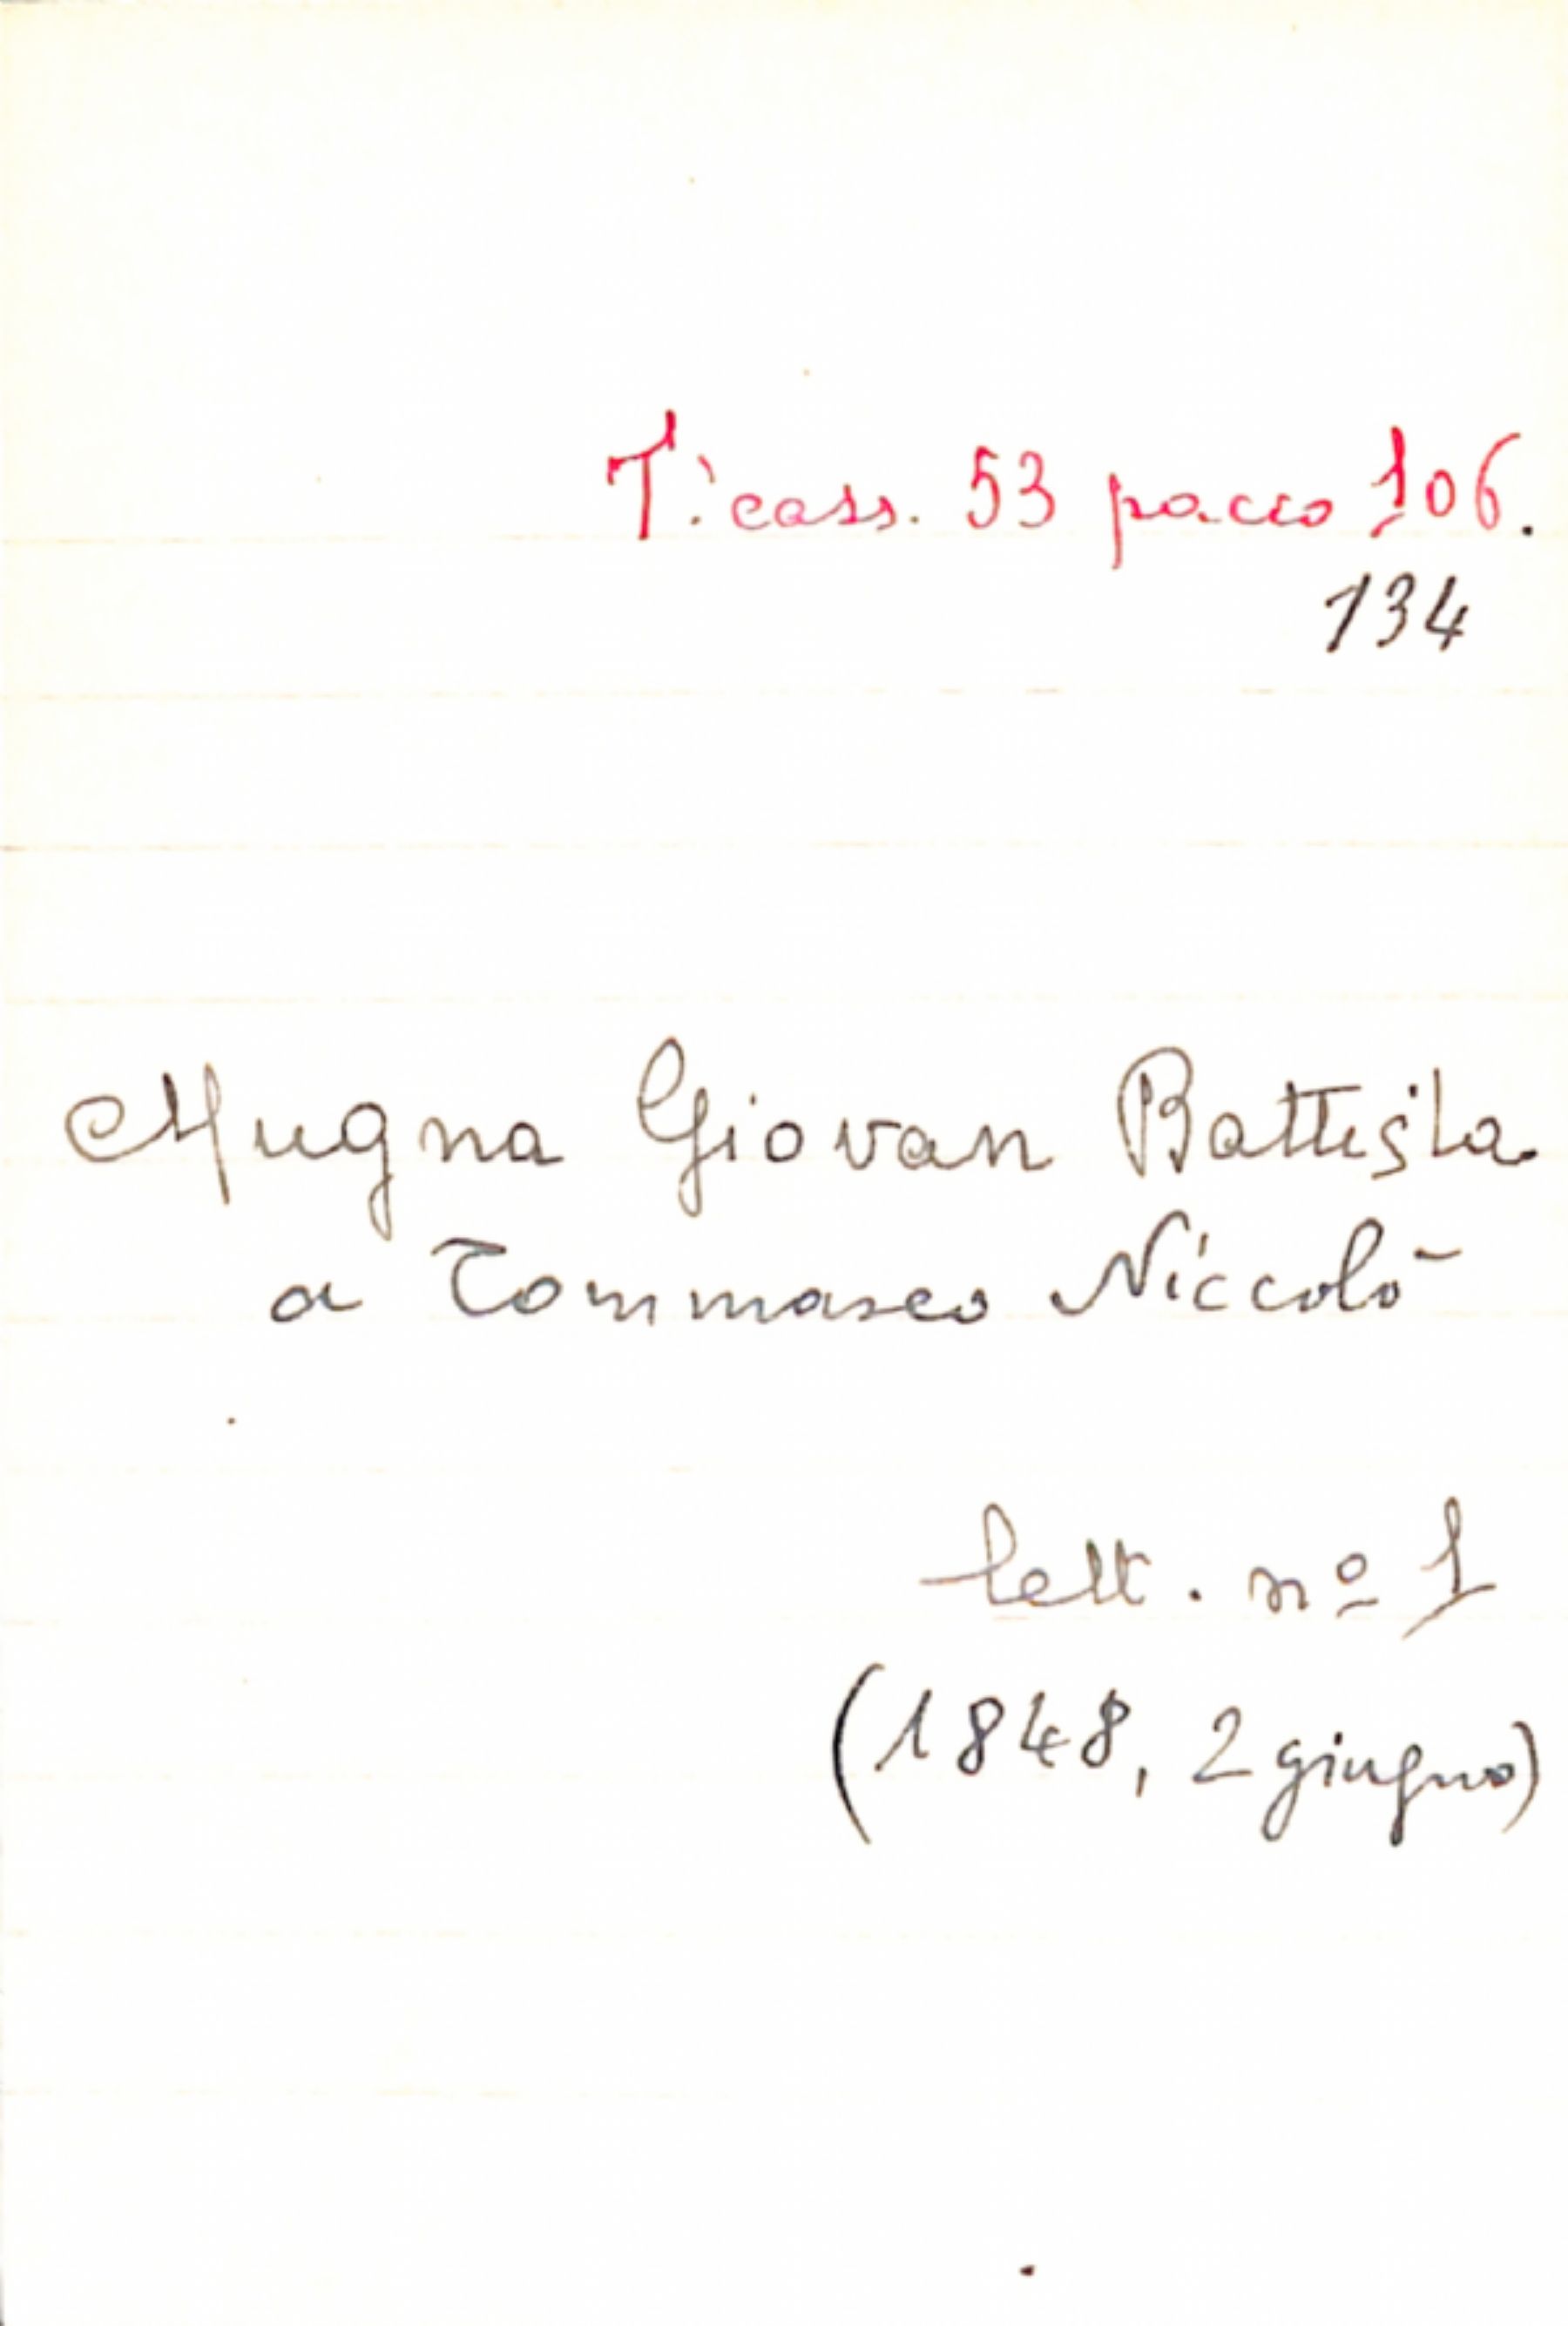 T. cass. 53 pacco 106.
134
Mugna Giovan Battista
a Tommaseo Niccolò
lett. nº 1
(1848, 2 giugno)